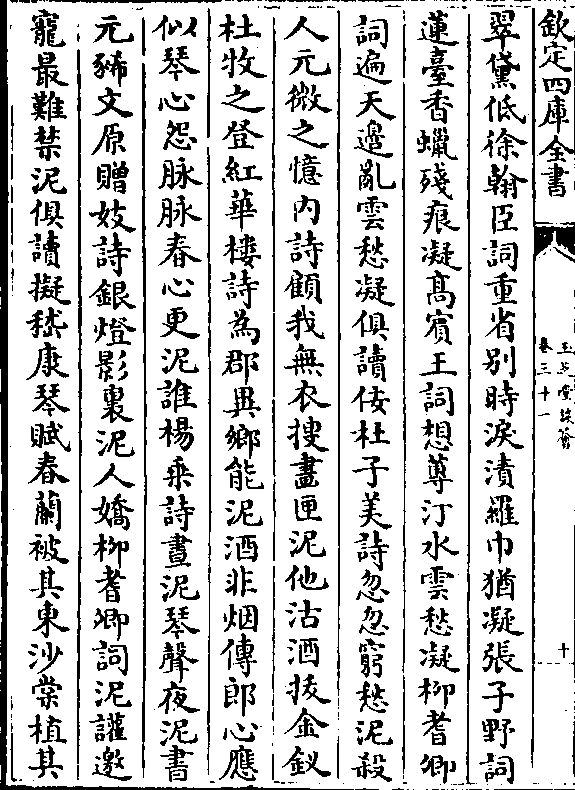 欽定四庫全書
玉芝堂談薈
卷三十一
十
翠黛低徐翰臣詞重省別時淚漬羅巾猶凝張子野詞
蓮臺香蠟殘痕凝高賓王詞想蓴汀水雲愁凝柳耆卿
詞遍天邊亂雲愁凝俱讀佞杜子美詩忽忽窮愁泥殺
人元微之憶内詩顧我無衣搜畫匣泥他沽酒拔金釵
杜牧之登紅華樓詩為郡異鄉能泥酒非烟傳郎心應
似琴心怨脉脉春心更泥誰楊乘詩晝泥琴聲夜泥書
元豨文原贈妓詩銀燈影裏泥人嬌柳耆卿詞泥讙邀
寵最難禁泥俱讀擬嵇康琴賦春蘭被其東沙棠植其